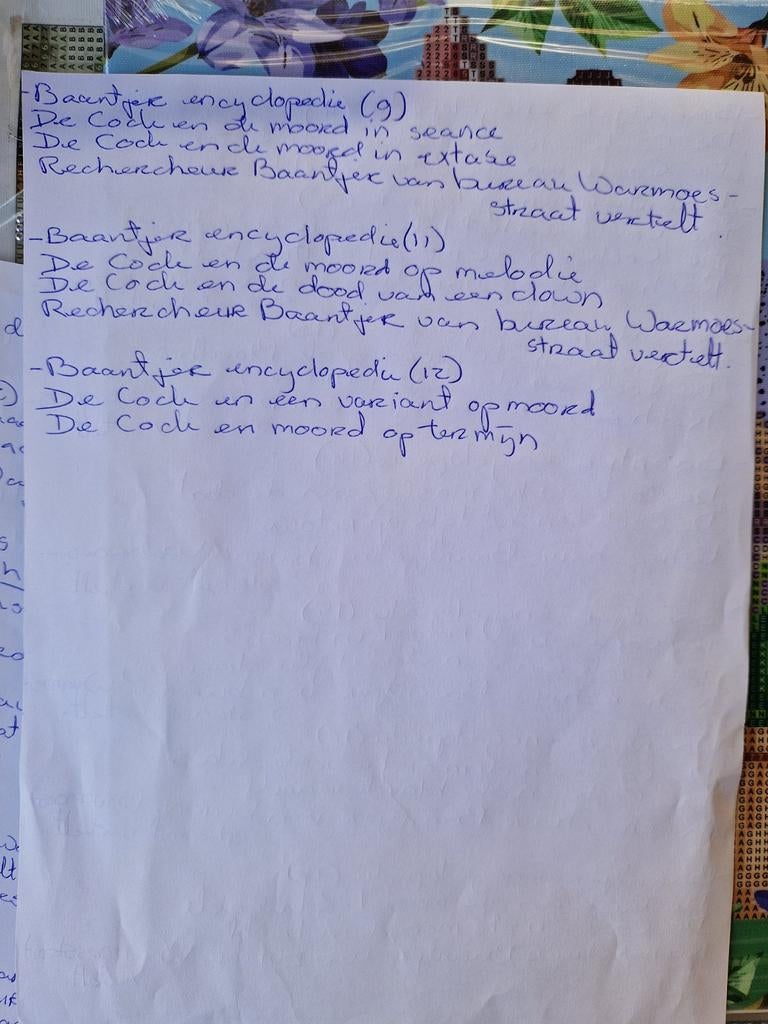 - Baantjer encyclopedie (9)
De Cock en de moord in seance
De Cock en de moord in extase
Rechercheur Baantjer van bureau Warmoes-
straat vertelt.
- Baantjer encyclopedie (11)
De Cock en de moord op melodie
De Cock en de dood van een clown
Rechercheur Baantjer van bureau Warmoes-
straat vertelt.
- Baantjer encyclopedie (12)
De Cock en een variant op moord
De Cock en moord op termijn